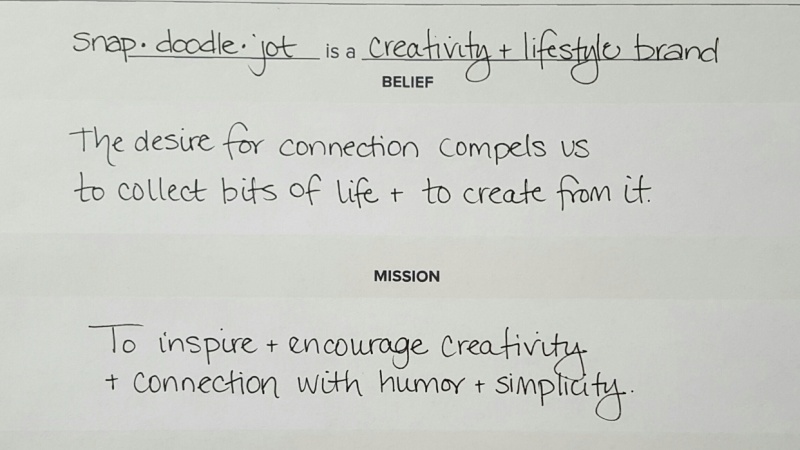 Snap. doodle. jot is a creativity + lifestyle brand
BELIEF
The desire for connection compels us
to collect bits of life + to create from it.
MISSION
To inspire + encourage creativity
+ connection with humor + simplicity.